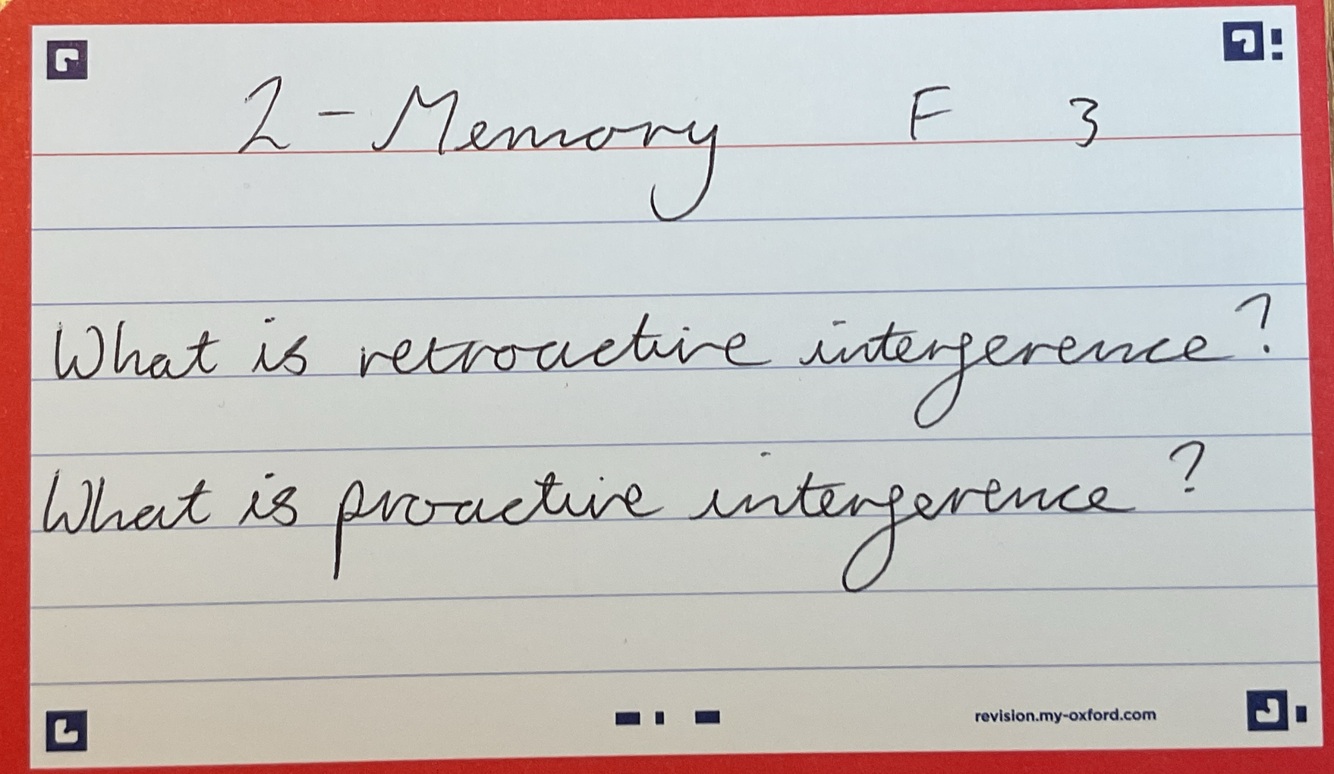 2 - Memory F 3
What is retroactive interference?
What is proactive interference?
revision.my-oxford.com